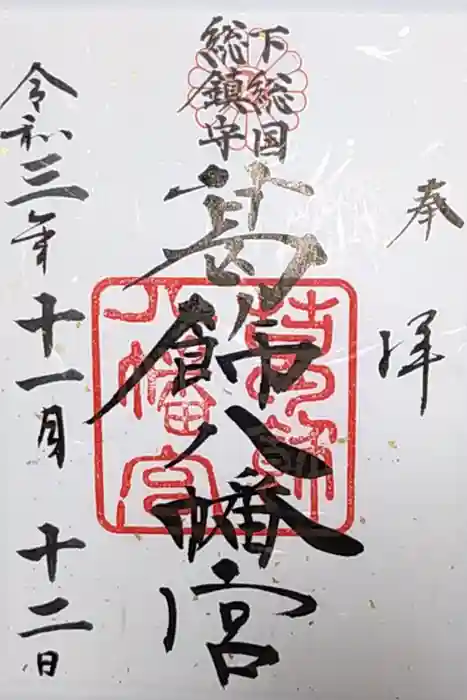 奉拝
下総国
総鎮守
葛飾八幡宮
令和三年十一月十二日
葛飾
八幡宮